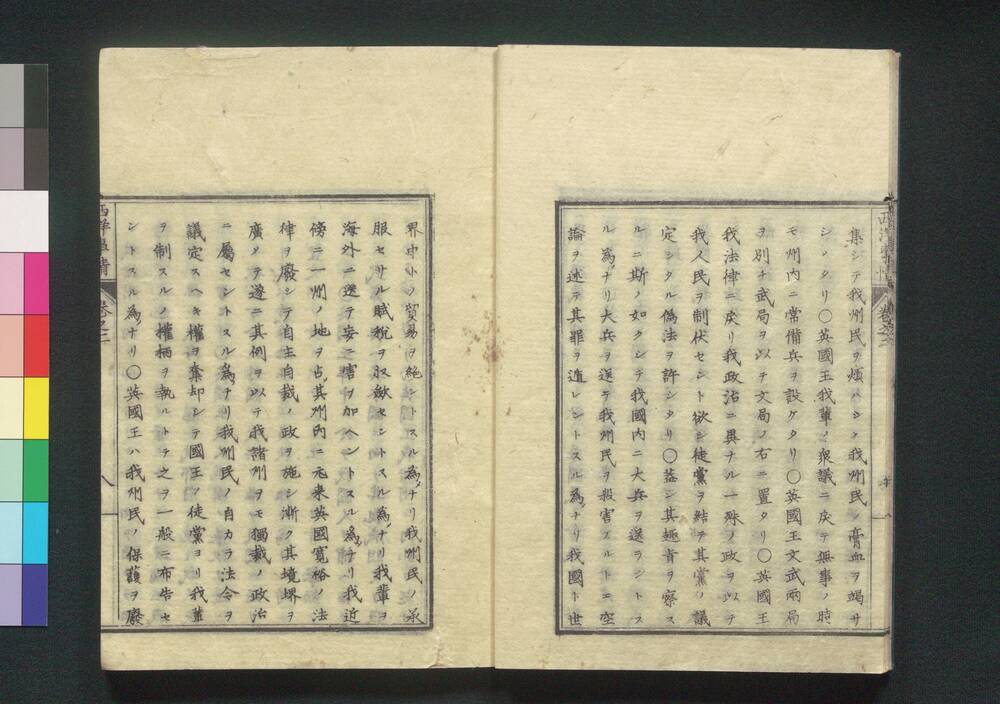 集シテ我州民ヲ煩ハシメ我州民ノ膏血ヲ竭サ
シメタリ〇英國王我輩ノ衆議ニ戻テ無事ノ時
モ州内ニ常備兵ヲ設ケタリ〇英國王文武兩局
ヲ別チ武局ヲ以テ文局ノ右ニ置タリ〇英國王
我法律ニ戻リ我政治ニ異ナル一殊ノ政ヲ以テ
我人民ヲ制伏セント欲シ徒黨ヲ結テ其黨ノ議
定シタル偽法ヲ許シタリ〇蓋シ其趣旨ヲ察ス
ルニ斯ノ如クシテ我國内ニ大兵ヲ送ラントス
ル為ナリ大兵ヲ送テ我州民ヲ殺害スルトモ空
論ヲ述テ其罪ヲ遁レントスル為ナリ我國ト世
界中外ノ貿易ヲ絶ントスル為ナリ我州民ノ承
服セサル賦税ヲ収斂セントスル為ナリ我輩ヲ
海外ニ送テ妄ニ害ヲ加ヘントスル為ナリ我近
傍ニ一州ノ地ヲ占其州内ニ元来英國寛裕ノ法
律ヲ廢シテ自主自裁ノ政ヲ施シ漸ク其境堺ヲ
廣メテ遂ニ其例ヲ以テ我諸州ヲモ獨裁ノ政治
ニ屬セントスル為ナリ我州民ノ自カラ法令ヲ
議定スヘキ權ヲ奪却シテ國王ノ徒黨ヨリ我輩
ヲ制スルノ權柄ヲ執ルトテ之ヲ一般ニ布告セ
ントスル為ナリ〇英國王ハ我州民ノ保護ヲ廢
西洋事情
卷之二
八